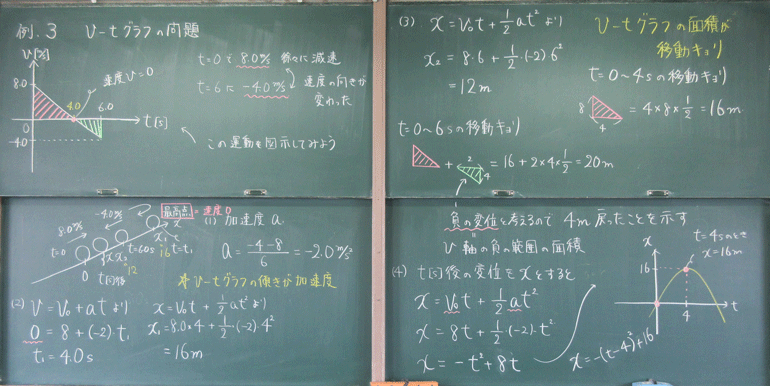 例.3 v-tグラフの問題
v[m/s]
8.0
4.0
6.0
0
-4.0
t[s]
速度v=0
t=0で 8.0m/s 徐々に減速
t=6に -4.0m/s 速度の向きが
変わった
この運動を図示してみよう
最高点 = 速度0
8.0m/s
-4.0m/s
t=0
t=6.0s
t=t₁
x
x₁
x₂
16
12
0
t[s]後
(1) 加速度 a
a = (-4-8)/6 = -2.0m/s²
v-tグラフの傾きが加速度
(2) v = v₀+at より
0 = 8+(-2)·t₁
t₁ = 4.0s
x = v₀t + 1/2 at² より
x₁ = 8.0×4 + 1/2·(-2)·4²
= 16m
(3) x = v₀t + 1/2 at² より
x₂ = 8·6 + 1/2·(-2)6²
= 12m
v-tグラフの面積が
移動キョリ
t=0~4sの移動キョリ
8
4
= 4×8×1/2 = 16m
t=0~6sの移動キョリ
+
2
4
= 16+2×4×1/2 = 20m
負の変位と考えるので 4m戻ったことを示す
v軸の負の範囲の面積
(4) t[s]後の変位をxとすると
x = v₀t + 1/2 at²
x = 8t + 1/2·(-2)·t²
x = -t²+8t
x
16
4
t
t=4sのとき
x=16m
x=-(t-4)²+16